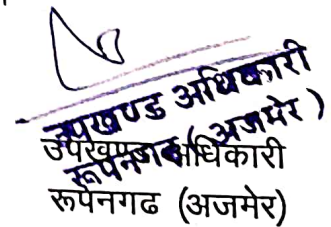 उपखण्ड अधिकारी
रूपनगढ (अजमेर)
उपखण्ड अधिकारी
रूपनगढ (अजमेर)